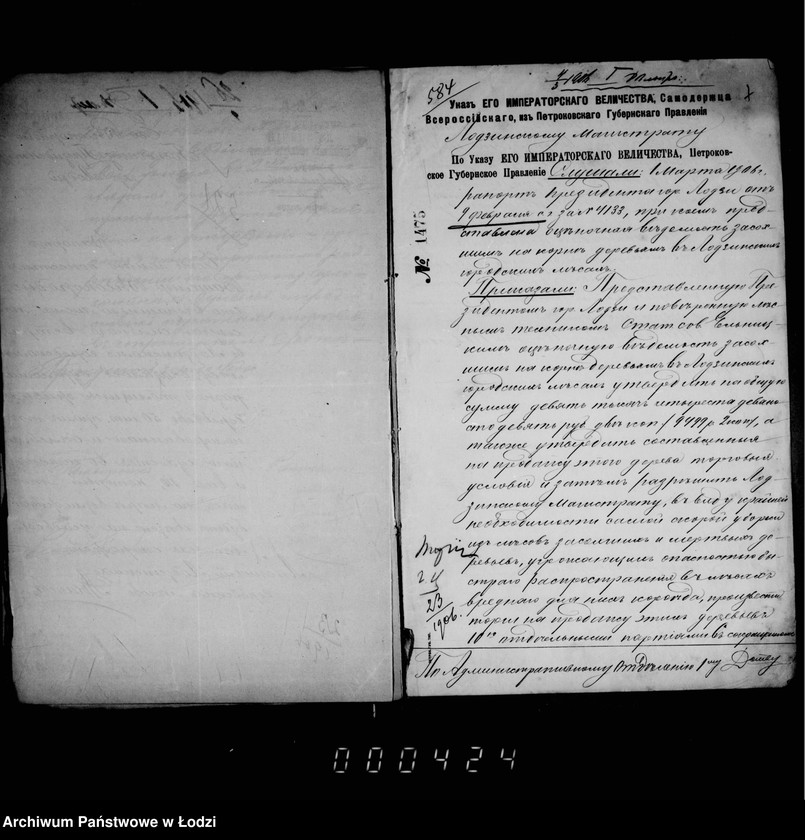 584
Указъ ЕГО ИМПЕРАТОРСКАГО ВЕЛИЧЕСТВА, Самодержца
Всероссійскаго, изъ Петроковскаго Губернскаго Правленія
Лодзинскому Магистрату
По Указу ЕГО ИМПЕРАТОРСКАГО ВЕЛИЧЕСТВА, Петроков-
ское Губернское Правленіе Слушали: 1 Марта 1906 г.
рапортъ Президента гор. Лодзи отъ
9 февраля с. г. за № 4133, при коемъ пред-
ставлена оцѣночная вѣдомость засох-
шимъ на корнѣ деревьямъ въ Лодзинскихъ
городскихъ лѣсахъ.
№ 1475
Приказали: Представленную Пре-
зидентомъ гор. Лодзи и повѣренную лѣс-
нымъ техникомъ
кимъ оцѣночную вѣдомость засох-
шимъ на корнѣ деревьямъ въ Лодзинскихъ
городскихъ лѣсахъ утвердить на общую
сумму девять тысячъ четыреста девяно-
сто девять руб. двѣ коп. (9499 р. 2 коп.), а
также утвердить составленныя
на продажу этого дерева торговыя
условія и затѣмъ разрѣшить Лод-
зинскому Магистрату, въ виду крайней
необходимости самой скорой уборки
изъ лѣсовъ засохшихъ и мертвыхъ де-
ревьевъ, угрожающихъ опасностью бы-
страго распространенія въ лѣсахъ
вреднаго для нихъ короѣда, произвести
торги на продажу этихъ деревьевъ
10ю отдѣльными партіями въ сокращенные
23
1906.
По Административному Отдѣленію 1му
000424
Archiwum Państwowe w Łodzi